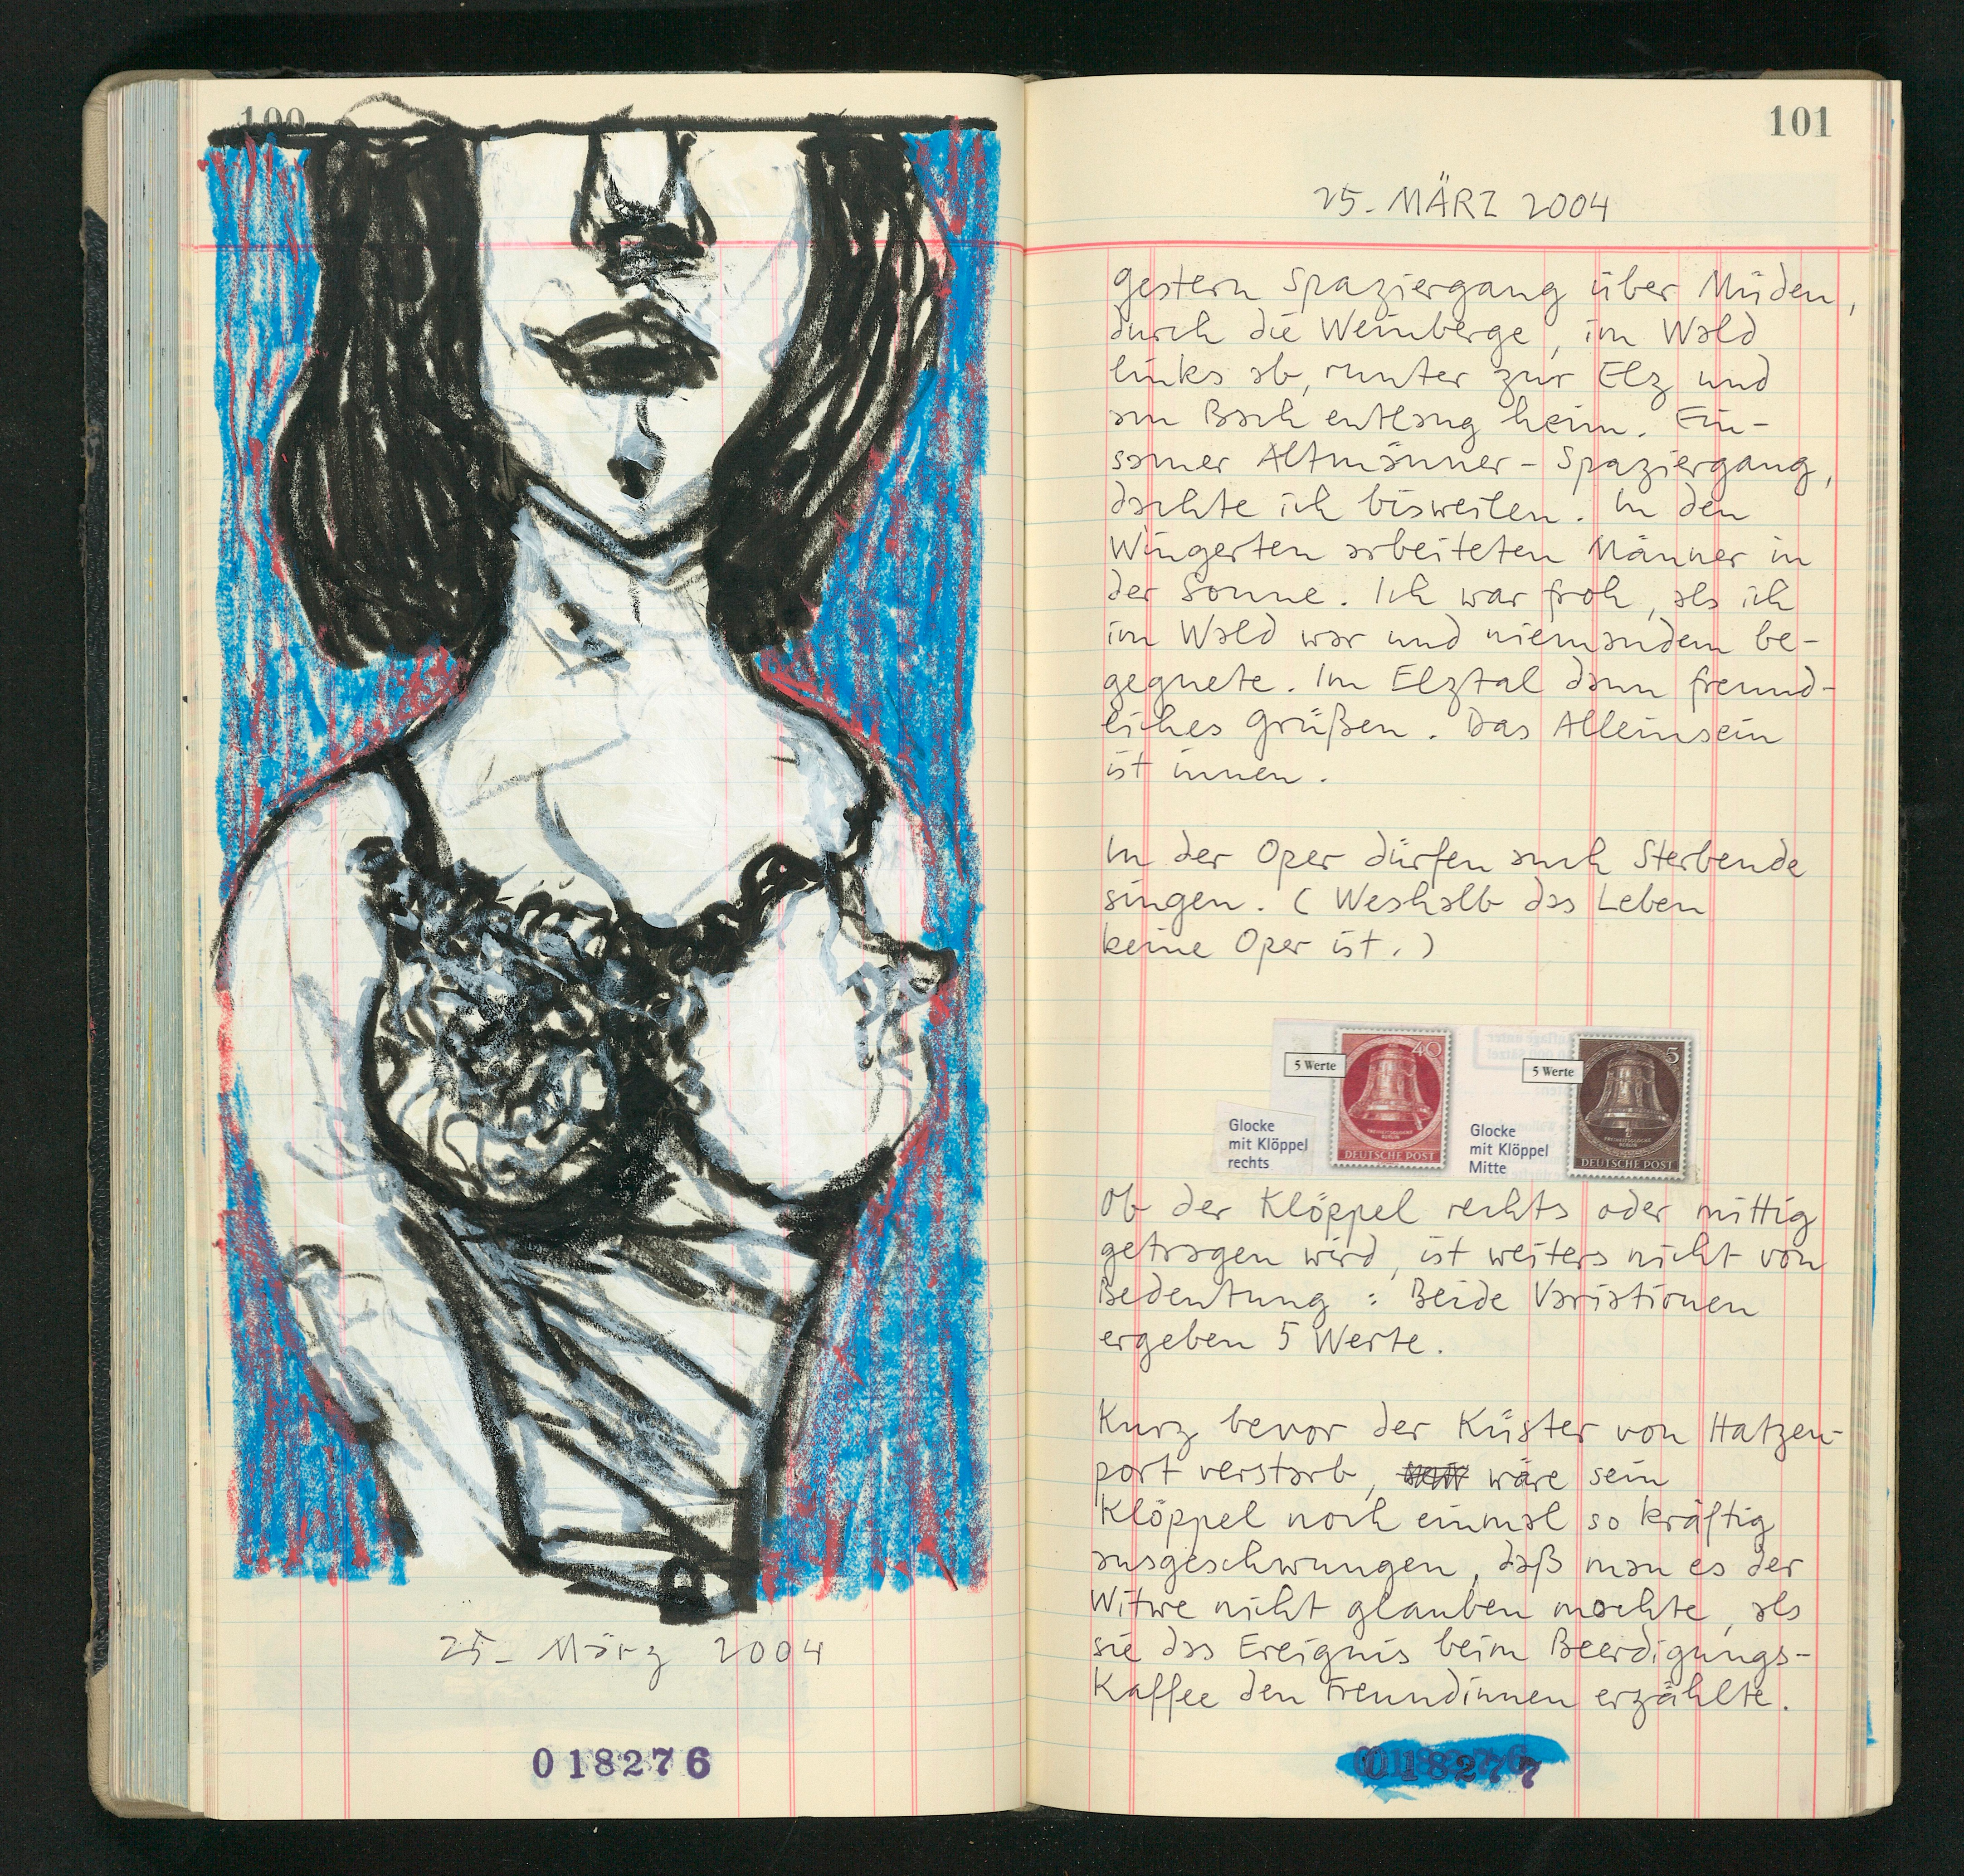 100
25. März 2004
018276
101
25. MÄRZ 2004
gestern Spaziergang über Müden,
durch die Weinberge, im Wald
links ab, runter zur Elz und
am Bach entlang heim. Ein-
samer Altmänner-Spaziergang,
dachte ich bisweilen. In den
Wingerten arbeiteten Männer in
der Sonne. Ich war froh, als ich
im Wald war und niemandem be-
gegnete. Im Elztal dann freund-
liches Grüßen. Das Alleinsein
ist innen.
In der Oper dürfen auch Sterbende
singen. (Weshalb das Leben
keine Oper ist.)
5 Werte
40
DEUTSCHE POST
Glocke
mit Klöppel
rechts
5 Werte
5
FREIHEITSGLOCKE
BERLIN
DEUTSCHE POST
Glocke
mit Klöppel
Mitte
Ob der Klöppel rechts oder mittig
getragen wird, ist weiters nicht von
Bedeutung: Beide Variationen
ergeben 5 Werte.
Kurz bevor der Küster von Hatzen-
port verstarb, wäre sein
Klöppel noch einmal so kräftig
ausgeschwungen, daß man es der
Witwe nicht glauben mochte, als
sie das Ereignis beim Beerdigungs-
Kaffee den Freundinnen erzählte.